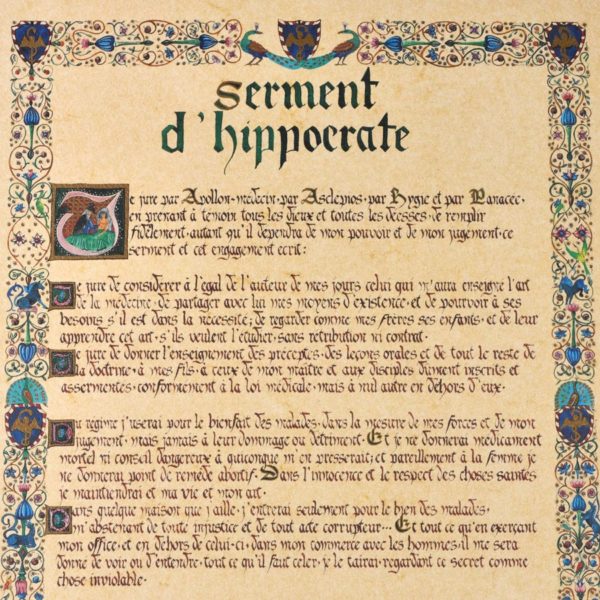 Serment
d'hippocrate
Je jure par Apollon·medecin·par Asclepios·par Hygie et par Panacee·
en prenant à temoin tous les dieux et toutes les deesses·de remplir
fidèlement·autant qu'il dependra de mon pouvoir et de mon jugement·ce
serment et cet engagement ecrit:
Je jure de considerer à l'egal de l'auteur de mes jours celui qui m'aura enseigne l'art
de la medecine·de partager avec lui mes moyens d'existence·et de pourvoir à ses
besoins s'il est dans la necessite; de regarder comme mes frères ses enfants·et de leur
apprendre cet art·s'ils veulent l'etudier·sans retribution ni contrat·
Je jure de donner l'enseignement des preceptes·des leçons orales et de tout le reste de
la doctrine·à mes fils·à ceux de mon maître et aux disciples dûment inscrits et
assermentes·conformement à la loi medicale·mais à nul autre en dehors d'eux·
Au regime j'userai pour le bienfait des malades·dans la mesure de mes forces et de mon
jugement·mais jamais à leur dommage ou detriment·Et je ne donnerai medicament
mortel ni conseil dangereux à quiconque m'en presserait; et pareillement à la femme je
ne donnerai point de remède abortif·Dans l'innocence et le respect des choses saintes
je maintiendrai et ma vie et mon art·
Dans quelque maison que j'aille·j'entrerai seulement pour le bien des malades·
m'abstenant de toute injustice et de tout acte corrupteur... Et tout ce qu'en exerçant
mon office·et en dehors de celui-ci·dans mon commerce avec les hommes·il me sera
donne de voir ou d'entendre·tout ce qu'il faut celer·je le tairai·regardant ce secret comme
chose inviolable·